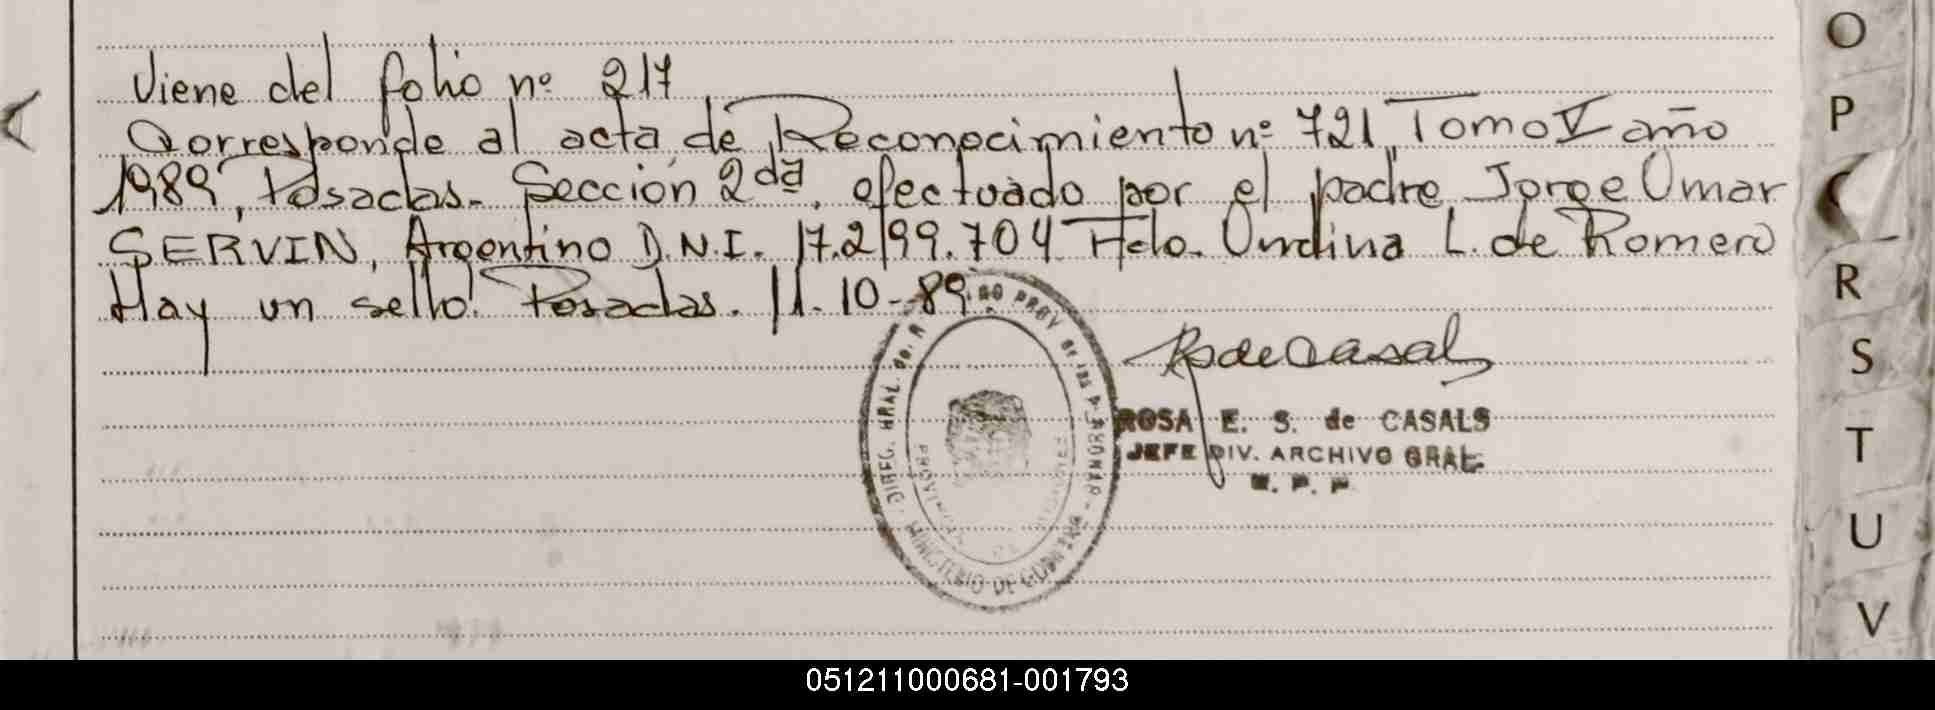 Viene del folio nº 217
Corresponde al acta de Reconocimiento nº 721, Tomo V año
1989, Posadas. Sección 2da. efectuado por el padre Jorge Omar
SERVIN, Argentino D.N.I. 17.299.704 Fdo. Ondina L. de Romero
Hay un sello. Posadas. 11-10-89.
R S de Casals
ROSA E. S. de CASALS
JEFE DIV. ARCHIVO GRAL.
DIREC. GRAL. del R
PROV DE LAS PERSONAS
MINISTERIO DE GOBIERNO
O
P
R
S
T
U
V
051211000681-001793